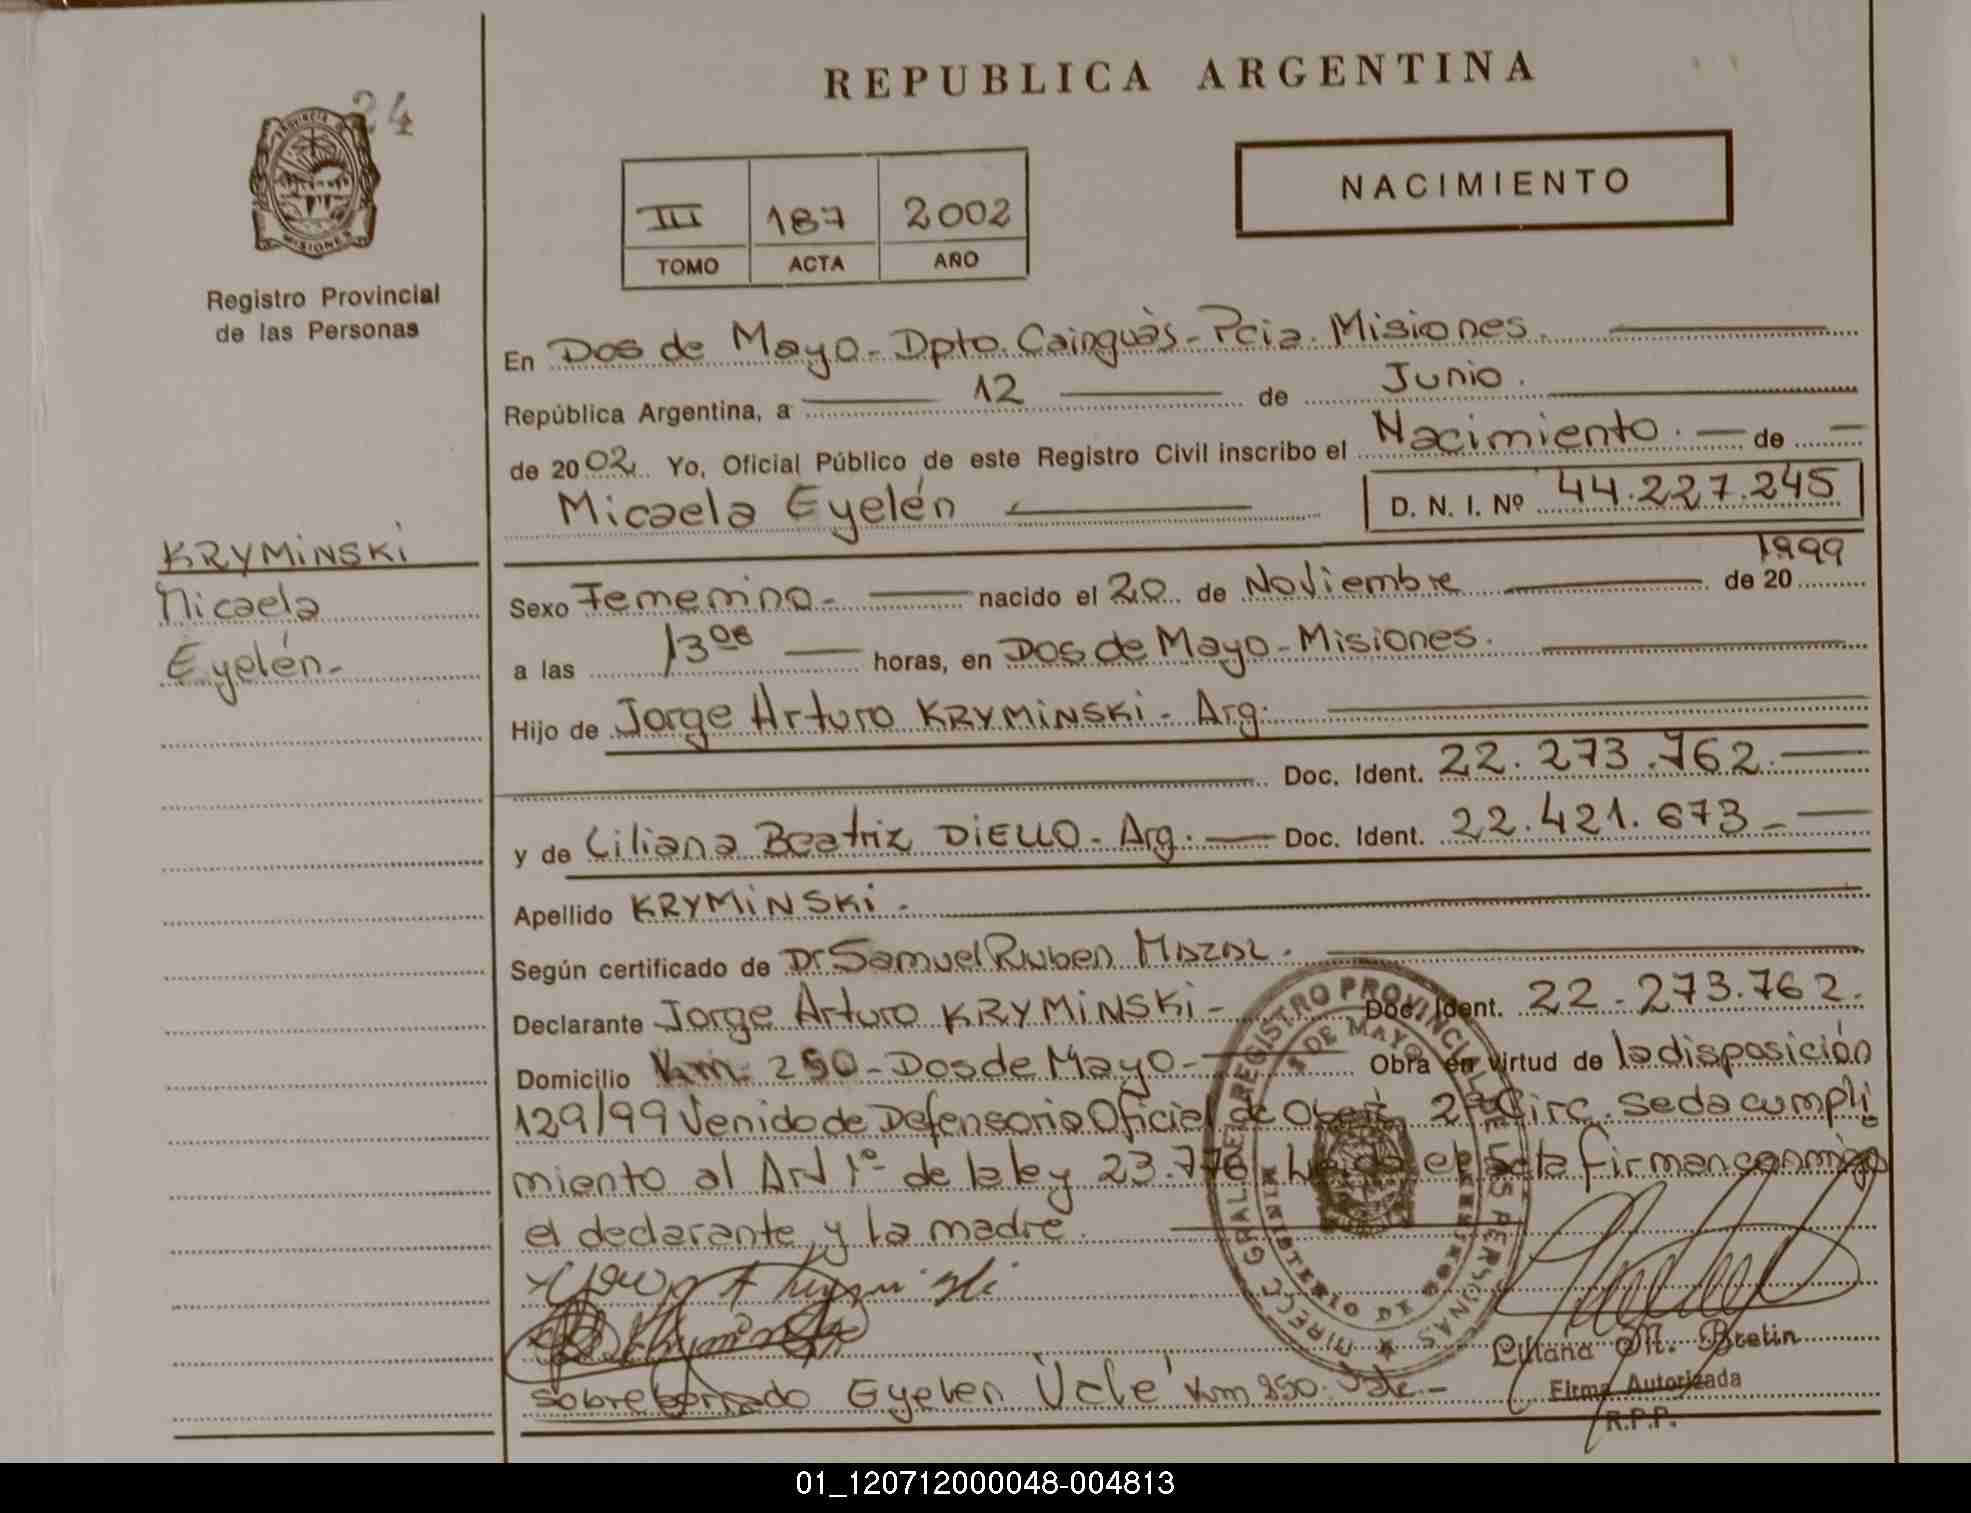 REPUBLICA ARGENTINA
24
PROVINCIA
MISIONES
Registro Provincial
de las Personas
III 187 2002
TOMO ACTA AÑO
NACIMIENTO
En Dos de Mayo - Dpto. Cainguás - Pcia. Misiones.
República Argentina, a 12 de Junio.
de 2002. Yo, Oficial Público de este Registro Civil inscribo el Nacimiento. de
Micaela Eyelén
D. N. I. Nº 44.227.245
KRYMiNSKi
Micaela
Eyelén-
Sexo Femenino- nacido el 20 de Noviembre de 20 1999
a las 13 06 horas, en Dos de Mayo - Misiones.
Hijo de Jorge Arturo KRYMiNSKi - Arg.
Doc. Ident. 22.273.762.
y de Liliana Beatriz DiELLO - Arg. Doc. Ident. 22.421.673-
Apellido KRYMiNSKi.
Según certificado de Dr Samuel Ruben MAZAL.
Declarante Jorge Arturo KRYMiNSKi- Doc. Ident. 22.273.762.
Domicilio Km. 250 - Dos de Mayo - Obra en virtud de la disposición
129/99 Venido de Defensoria Oficial de Oberá 2ª Circ. Se da cumpli
miento al Art 1º de la ley 23.776 Leida el acta firman conmigo
el declarante y la madre.
Liliana M. Bretin
Firma Autorizada
R.P.P.
sobreborrado Eyelen Vale Km 250. Vale.-
DIRECC GRAL DEL REGISTRO PROVINCIAL DE LAS PERSONAS
2 DE MAYO
MINISTERIO DE GOBIERNO
MISIONES
01_120712000048-004813